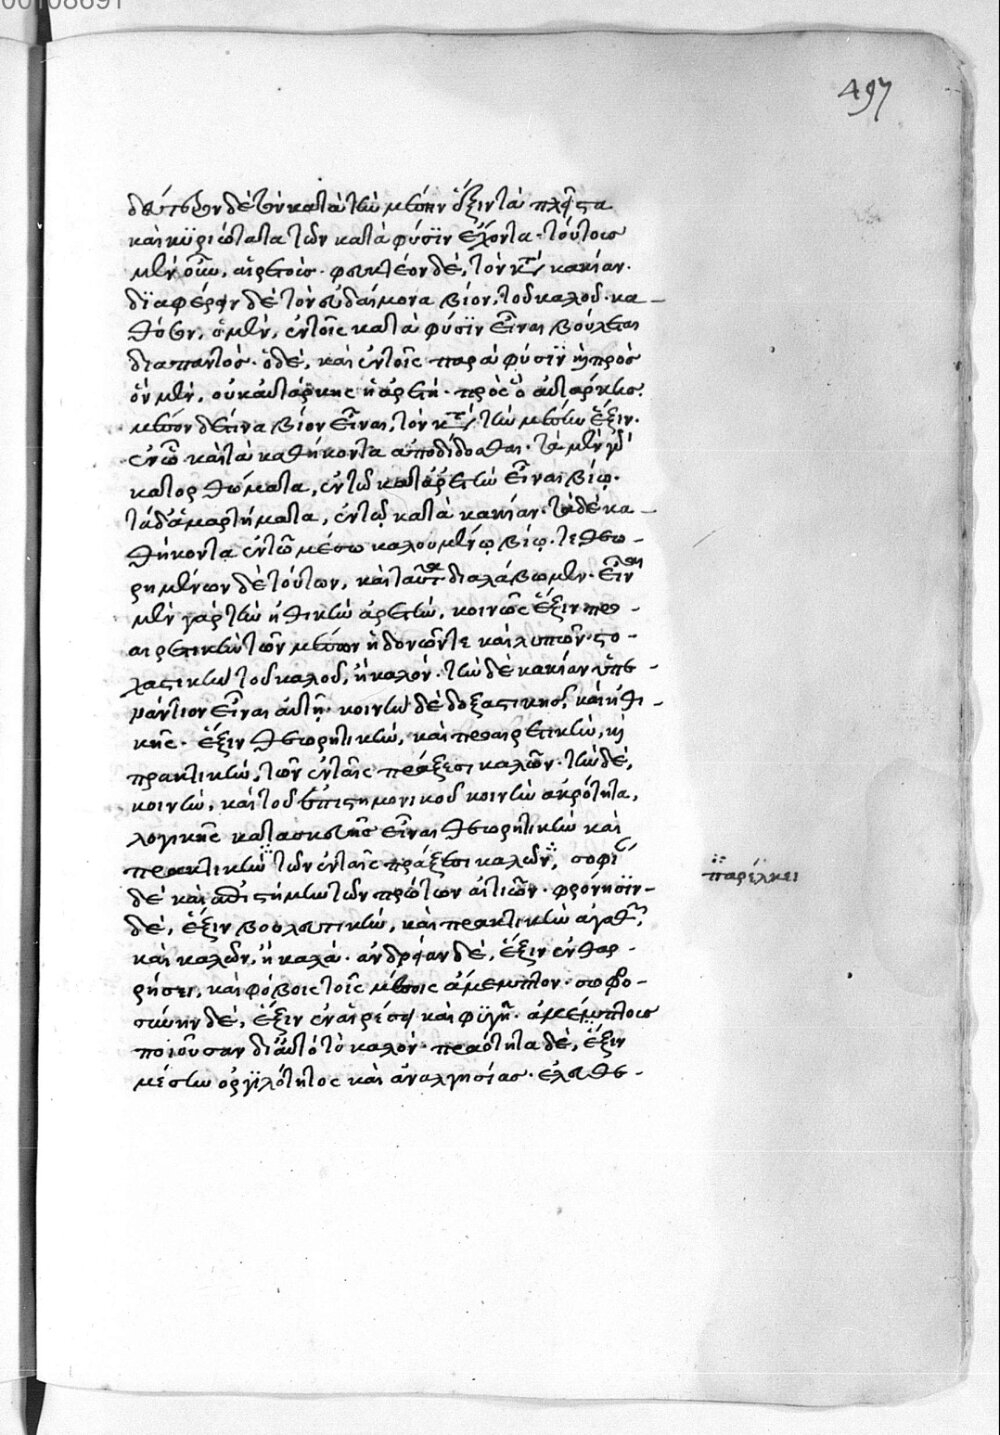 497
δεύτερον δὲ τὸν κατὰ τὴν μέσην ἕξιν τὰ πλεῖστα
καὶ κυριώτατα τῶν κατὰ φύσιν ἔχοντα· τούτους
μὲν οὖν, αἱρετούς· φευκτέον δὲ, τὸν κτ κακίαν·
διαφέρειν δὲ τὸν εὐδαίμονα βίον, τοῦ καλοῦ· κα-
θόσον, ὁ μὲν, ἐν τοῖς κατὰ φύσιν εἶναι βούλεται
διαπαντός· ὁ δὲ, καὶ ἐν τοῖς παρὰ φύσιν· ἢ πρὸς
ὃν μὲν, οὐκ αὐτάρκης ἡ ἀρετή· πρὸς ὃ αὐτάρκως·
μέσον δέ τινα βίον εἶναι, τὸν κτ τὴν μέσην ἕξιν·
ἐν ᾧ καὶ τὰ καθήκοντα ἀποδίδοσθαι· τὰ μὲν γὰρ
κατορθώματα, ἐν τῷ κατ' ἀρετὴν εἶναι βίῳ·
τὰ δ' ἁμαρτήματα, ἐν τῷ κατὰ κακίαν· τὰ δὲ κα-
θήκοντα ἐν τῷ μέσω καλουμένῳ βίῳ· τεθεω-
ρημένων δὲ τούτων, καὶ ταῦτα διαλάβωμεν· εἶναι
μὲν γὰρ τὴν ἠθικὴν ἀρετὴν, κοινῶς ἕξιν προ-
αιρετικὴν τῶν μέσων ἡδονῶν τε καὶ λυπῶν· στο-
χαστικὴν τοῦ καλοῦ, ἢ καλόν· τὴν δὲ κακίαν ὑπε-
ναντίον εἶναι αὐτῇ· κοινὴν δὲ δοξαστικῆς, καὶ ἠθι-
κῆς· ἕξιν θεωρητικὴν, καὶ προαιρετικὴν, καὶ
πρακτικὴν, τῶν ἐν ταῖς πράξεσι καλῶν· τὴν δὲ,
κοινὴν, καὶ τοῦ ἐπιστημονικοῦ κοινὴν ἀκρότητα,
λογικῆς κατασκευῆς εἶναι θεωρητικὴν καὶ
πρακτικὴν τῶν ἐν ταῖς πράξεσι καλῶν, σοφί
δὲ καὶ ἐπιστήμην τῶν πρώτων αἰτιῶν· φρόνησιν
δὲ, ἕξιν βουλευτικὴν, καὶ πρακτικὴν ἀγαθῶν
καὶ καλῶν, ἢ καλά· ἀνδρείαν δὲ, ἕξιν ἐν θαρ-
ρήσει, καὶ φόβοις τοῖς μέσοις ἄμεμπτον· σωφρο-
σύνην δὲ, ἕξιν ἐν αἱρέσει καὶ φυγῇ· ἀμέμπτους
ποιοῦσαν δι' αὐτὸ τὸ καλόν· πραότητα δὲ, ἕξιν
μέσην ὀργιλότητος καὶ ἀναλγησίας· ἐλευθε-
παρέλκει